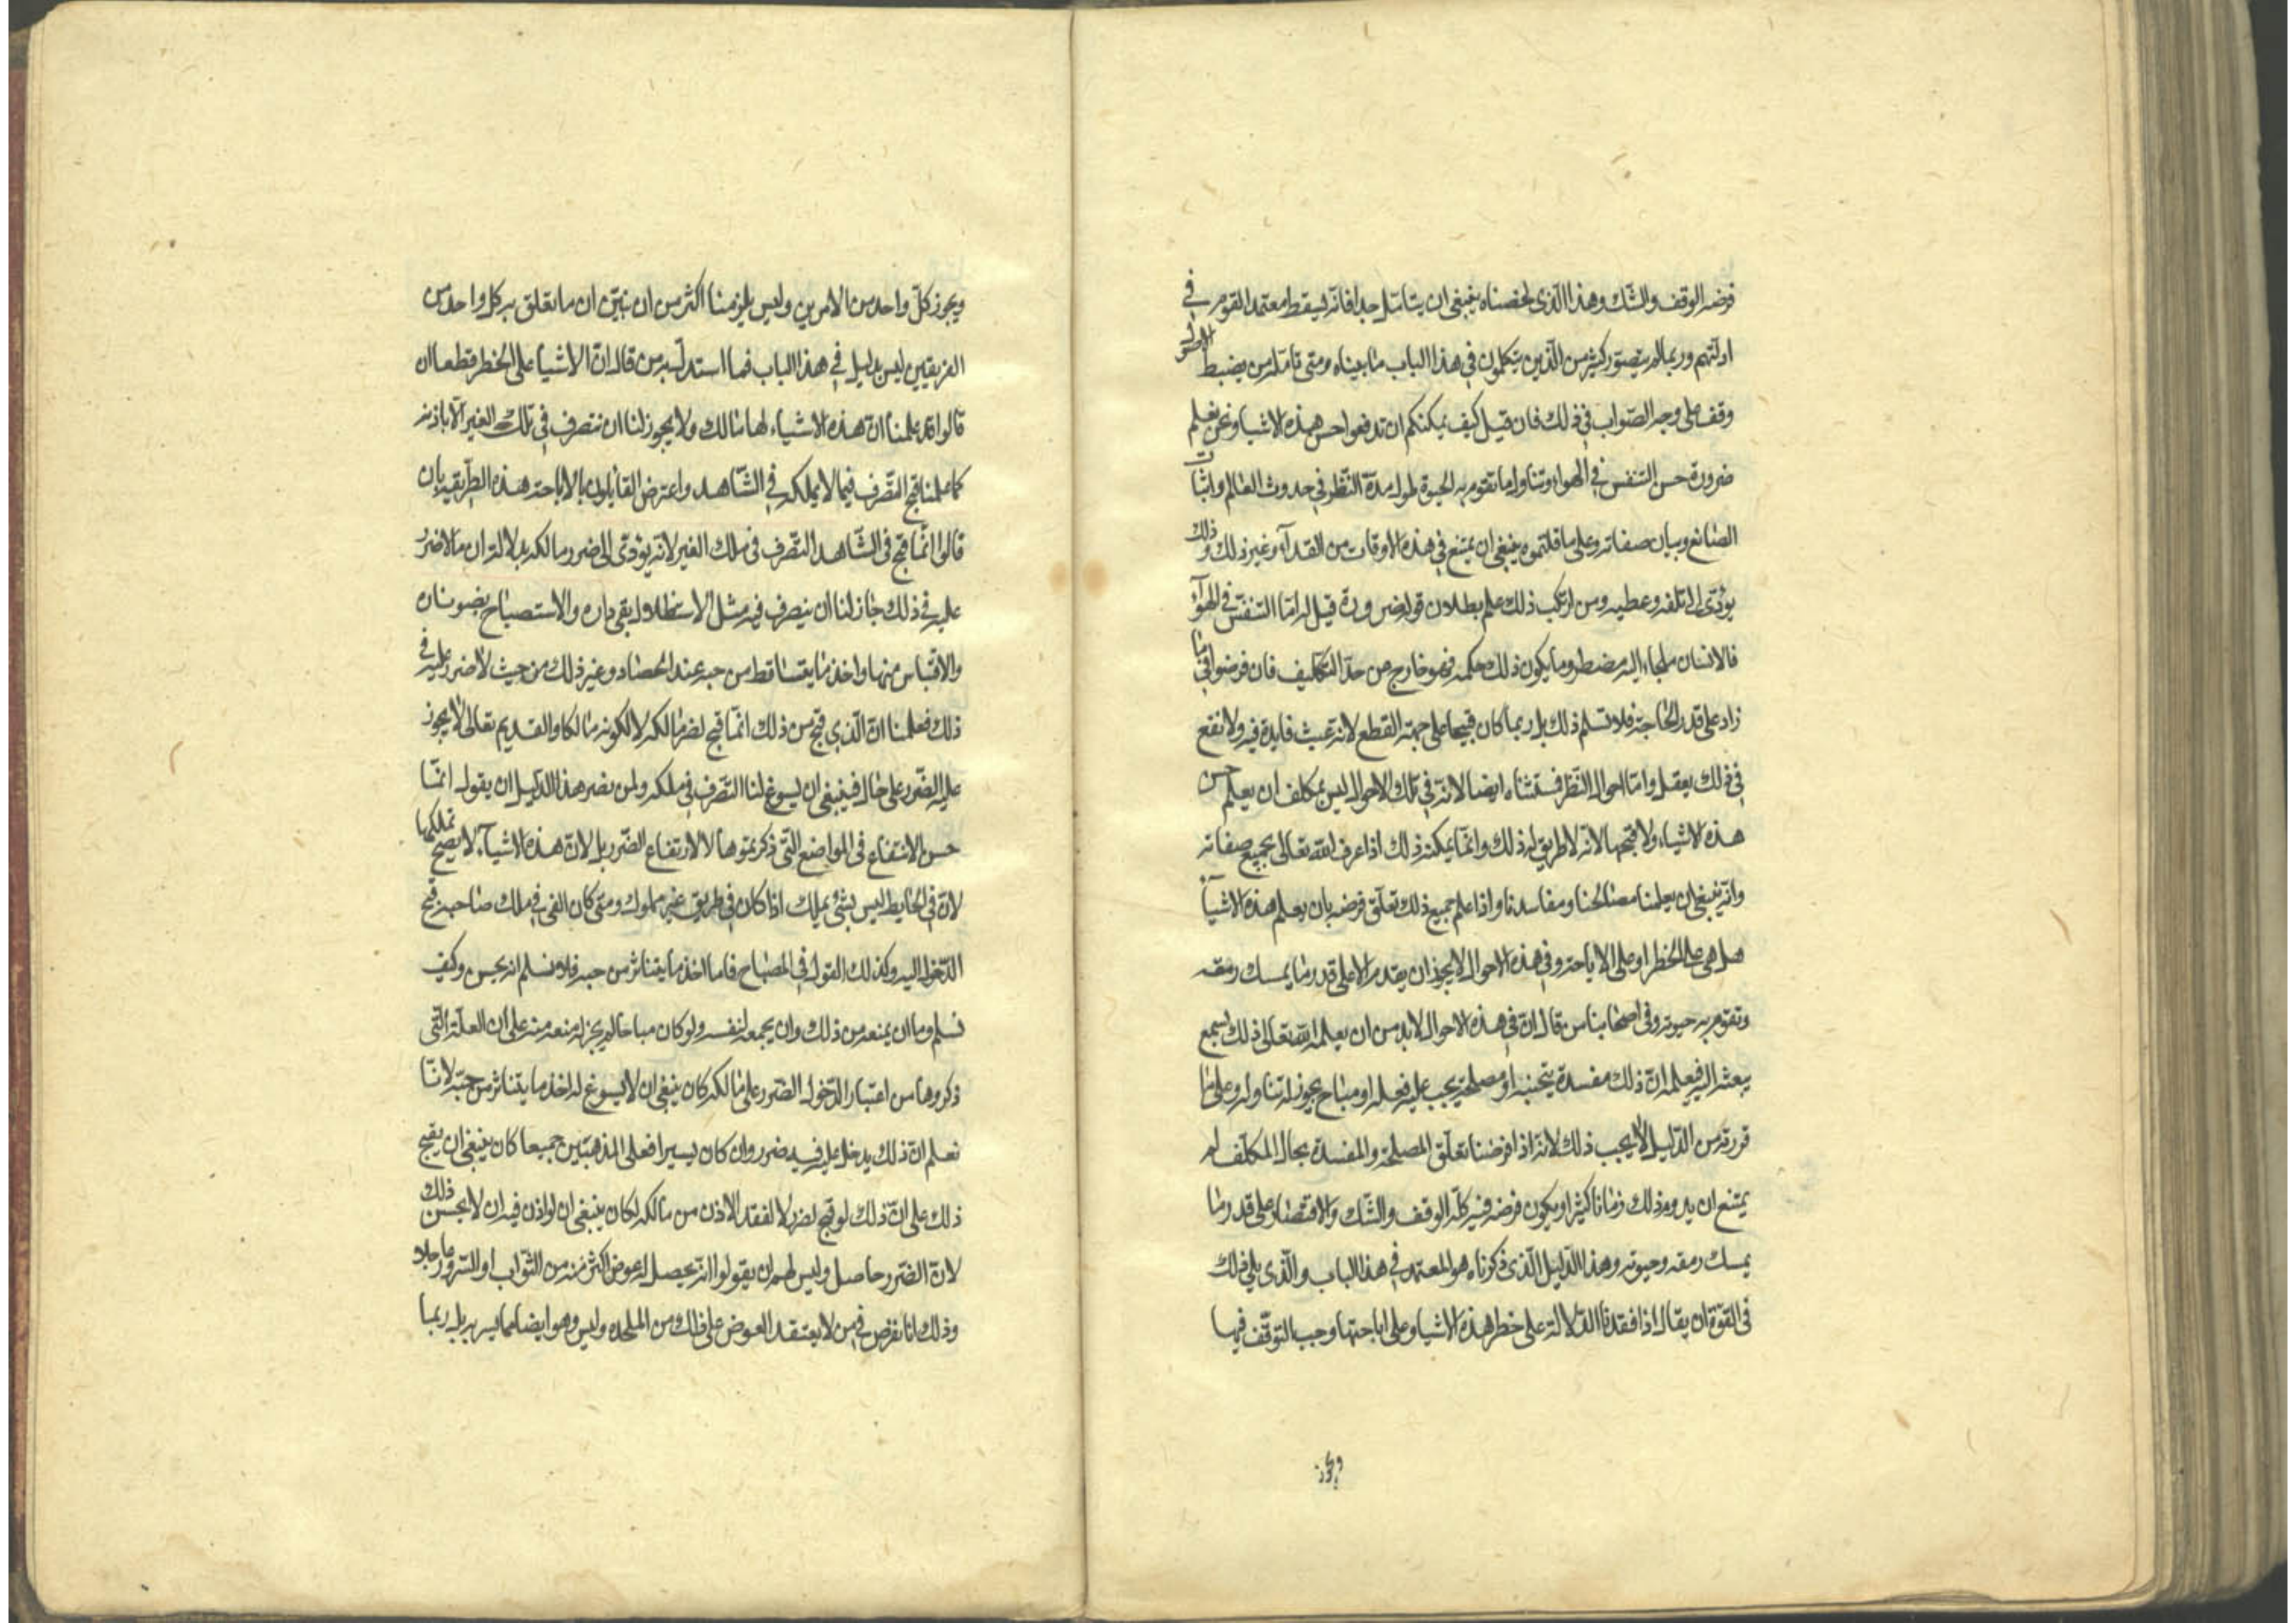 فرضه الوقف والشّك وهذا الّذى لخصناه ينبغى ان يتامّل جدا فانّه يسقط معتمد القوم فى
ادلّتهم وربما لم يتصوّر كثير من الّذين يتكلمون فى هذا الباب ما بيناه ومتى تامله من يضبط الاصول
وقف على وجه الصّواب فى ذلك فان قيل كيف يمكنكم ان تدفعوا حسن هذه الاشيا ونحن نعلم
ضرورة حسن التنفس فى الهواء وتناول ما تقوم به الحيوة طول مدّة النّظر فى حدوث العالم واثبات
الصّانع وبيان صفاته وعلى ما قلتموه ينبغى ان يمتنع فى هذه الاوقات من الغذاء وغير ذلك وذلك
يودّى الى تلفه وعطبه ومن ارتكب ذلك علم بطلان قوله ضرورة قيل له امّا التنفّس فى الهوآء
فالانسان ملجاء اليه مضطر وما يكون ذلك حكمه فهو خارج عن حدّ التكليف فان فرضوا فى ما
زاد على قدر الحاجة فلا نسلم ذلك بل ربما كان قبيحا على جهة القطع لانه عبث لا فايدة فيه ولا نفع
فى ذلك يعقل وامّا احوال النّظر فمستثناه ايضا لانّه فى تلك الاحوال ليس بمكلف ان يعلم حسن
هذه الاشياء ولا قبحها لانّه لا طريق له لذلك وانّما يمكنه ذلك اذا عرف الله تعالى بجميع صفاته
وانّه ينبغى ان يعلمنا مصالحنا ومفاسدنا واذا علم جميع ذلك تعلّق فرضه بان يعلم هذه الاشيآ
هل هى على الحظر او على الاباحة وفى هذه الاحوال لا يجوز ان يقدم الا على قدر ما يمسك رمقه
وتقوم به حيوته وفى اصحابنا من قال انّ فى هذه الاحوال لا بد من ان يعلمه الله تعالى ذلك بسمع
يبعثه اليه فيعلمه انّ ذلك مفسدة يتجنبه او مصلحة يجب عليه فعله او مباح يجوز له تناوله وعلى ما
قررته من الدّليل لا يجب ذلك لانّه اذا فرضنا تعلّق المصلحة والمفسدة بحال المكلّف لم
يمتنع ان يدوم ذلك زمانا كثيرا ويكون فرضه فيه كلّه الوقف والشّك والاقتصار على قدر ما
يمسك رمقه وحيوته وهذا الدّليل الّذى ذكرناه هو المعتمد فى هذا الباب والّذى يلى ذلك
فى القوّة ان يقال اذا فقدنا الدّلالة على حظر هذه الاشيا وعلى اباحتها وجب التوقّف فيها
ويجوز
ويجوز كلّ واحد من الامرين وليس يلزمنا اكثر من ان نبيّن ان ما تعلق به كل واحد من
الفريقين ليس بدليل فى هذا الباب فما استدلّ به من قال انّ الاشيا على الحظر قطعا ان
قالوا قد علمنا انّ هذه الاشياء لها مالك ولا يجوز لنا ان نتصرف فى ملك الغير الّا باذنه
كما علمنا قبح التصّرف فيما لا يملكه فى الشّاهد واعترض القايلون بالاباحة هذه الطّريقة بان
قالوا انّما قبح فى الشّاهد التصّرف فى ملك الغير لانّه يؤدّى الى ضرر مالكه بدلالة ان ما لا ضرر
عليه فى ذلك جاز لنا ان نتصرف فيه مثل الاستظلال بفى داره والاستصباح بضوء ناره
والاقتباس منها واخذ ما يتساقط من حبه عند الحصاد وغير ذلك من حيث لا ضرر عليه فى
ذلك فعلمنا انّ الّذى قبح من ذلك انّما قبح لضر مالكه لا لكونه مالكا والقديم تعالى لا يجوز
عليه الضّرر على حال فينبغى ان يسوغ لنا التصّرف فى ملكه ولمن نصر هذا الدّليل ان يقول انّما
حسن الانتفاع فى المواضع الّتى ذكرتموها لا لارتفاع الضّرر بل لانّ هذه الاشيآء لا يصحّ تملكها
لانّ فى الحايط ليس بشئ يملك اذا كان فى طريق غير مملوك ومتى كان الفى فى ملك صاحبه قبح
الدّخول اليه وكذلك القول فى المصباح فاما اخذ ما يتناثر من حبه فلا نسلم انه يحسن وكيف
نسلم وما ان يمنعه من ذلك وان يجمعه لنفسه ولو كان مباحا لم يجز له منعه منه على ان العلّة الّتى
ذكروها من اعتبار الدّخول الضّرر على مالكه كان ينبغى ان لا يسوغ له اخذ ما يتناثر من حبّه لانّا
نعلم انّ ذلك يدخل عليه فيه ضرر وان كان يسيرا فعلى المذهبين جميعا كان ينبغى ان يقبح
ذلك على انّ ذلك لو قبح لضره لا لفقد الاذن من مالكه لكان ينبغى ان لو اذن فيه ان لا يحسن ذلك
لانّ الضّرر حاصل وليس لهم ان يقولوا انّه يحصل له عوض اكثر منه من الثّواب او السّرور عاجلا
وذلك انا نفرض فى من لا يعتقد العوض على ذلك من الملحده وليس وهو ايضا مما يسر به بل ربما